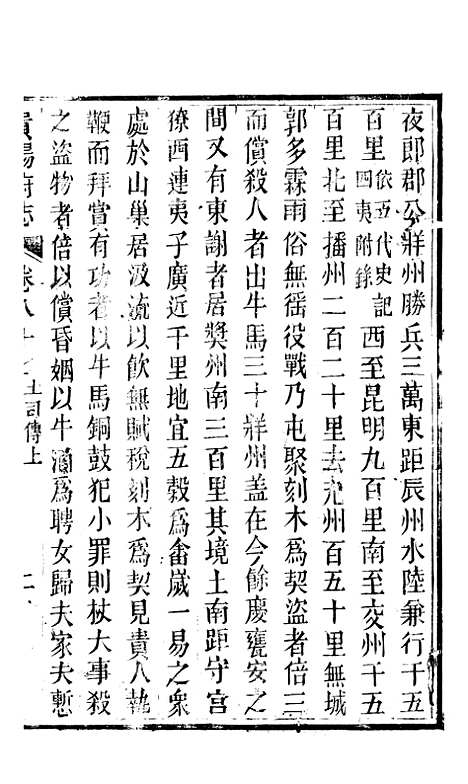 夜郎郡公牂州勝兵三萬東距辰州水陸兼行千五
百里依五代史記四夷附錄西至昆明九百里南至交州千五
百里北至播州二百二十里去充州百五十里無城
郭多霖雨俗無徭役戰乃屯聚刻木為契盜者倍三
而償殺人者出牛馬三十牂州蓋在今餘慶甕安之
間又有東謝者居獎州南三百里其境土南距守宮
獠西連夷子廣近千里地宜五穀為畬歲一易之衆
處於山巢居汲流以飲無賦稅刻木為契見貴人執
鞭而拜賞有功者以牛馬銅鼓犯小罪則杖大事殺
之盜物者倍以償昏姻以牛酒為聘女歸夫家夫慙
貴陽府志 卷八十 土司傳上